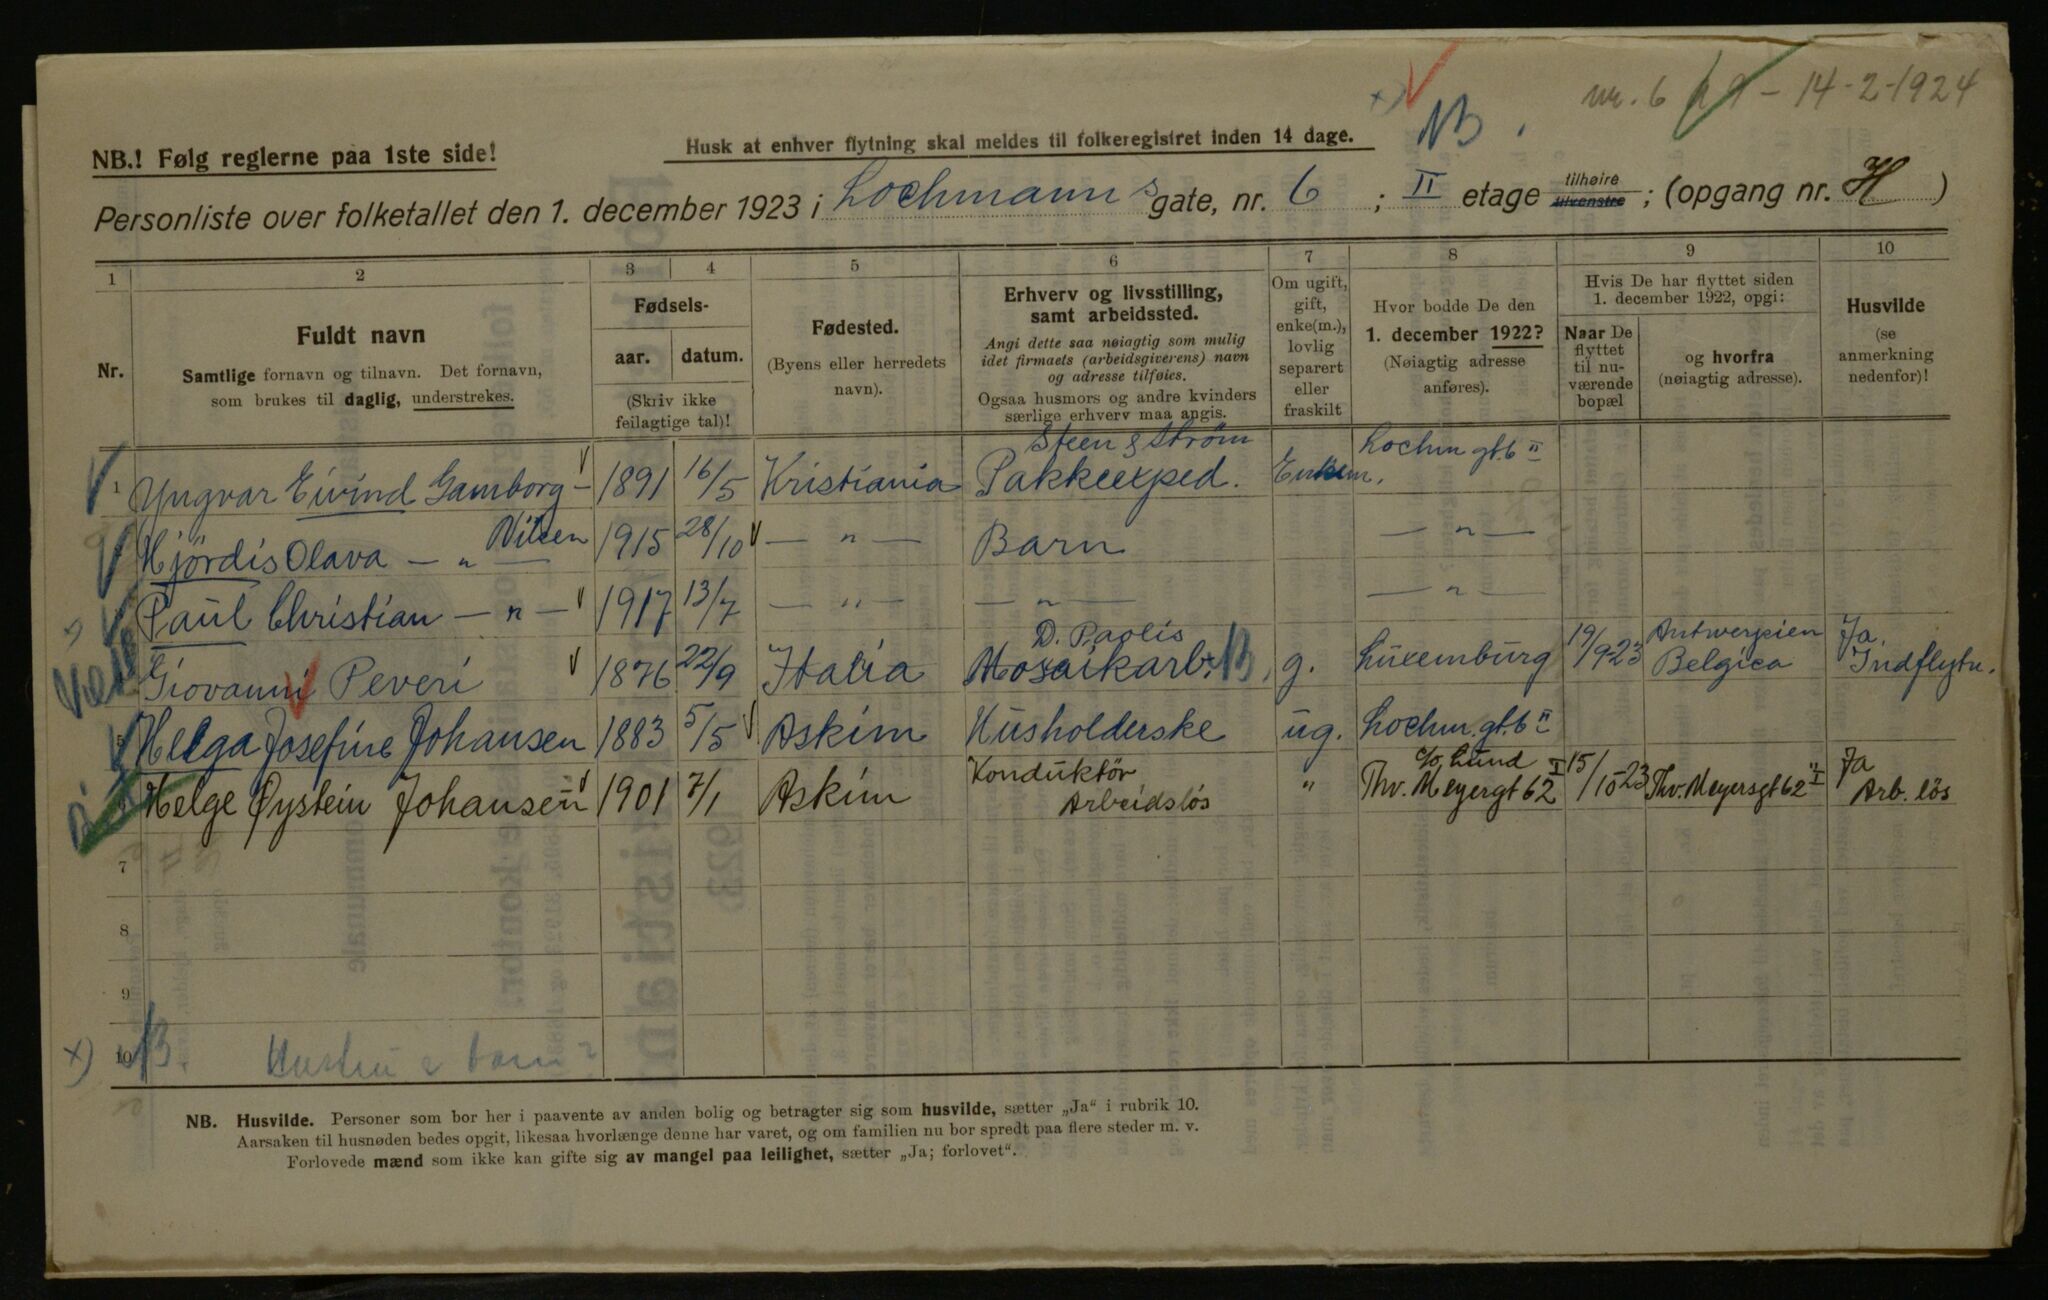 nr. 6 - 14-2-1924
x) NB.
NB.! Følg reglerne paa 1ste side!
Husk at enhver flytning skal meldes til folkeregistret inden 14 dage.
Personliste over folketallet den 1. december 1923 i Lochmanns gate, nr. 6 ; II etage tilhøire tilvenstre ; (opgang nr. H )
1 2 3 4 5 6 7 8 9 10
Nr.
Fuldt navn
Samtlige fornavn og tilnavn. Det fornavn,
som brukes til daglig, understrekes.
Fødsels-
aar. datum.
(Skriv ikke
feilagtige tal)!
Fødested.
(Byens eller herredets
navn).
Erhverv og livsstilling,
samt arbeidssted.
Angi dette saa nøiagtig som mulig
idet firmaets (arbeidsgiverens) navn
og adresse tilføies.
Ogsaa husmors og andre kvinders
særlige erhverv maa angis.
Om ugift,
gift,
enke(m.),
lovlig
separert
eller
fraskilt
Hvor bodde De den
1. december 1922?
(Nøiagtig adresse
anføres).
Hvis De har flyttet siden
1. december 1922, opgi:
Naar De
flyttet
til nu-
værende
bopæl
og hvorfra
(nøiagtig adresse).
Husvilde
(se
anmerkning
nedenfor)!
Steen & Strøm
1 Yngvar Eivind Gamborg- 1891 16/5 Kristiania Pakkeexped. Enkem. Lochm gt. 6 II
Nilsen
Hjördis Olava — „ — 1915 28/10 — „ — Barn — „ —
Paul Christian — „ — 1917 13/7 — „ — — „ — — „ —
D. Paolis
Giovanni Peveri 1876 22/9 Italia Mosaikarb. NB. g. Luxemburg 19/9-23 Antwerpien Belgica Ja. Indflytn.
5 Helga Josefine Johansen 1883 5/5 Askim Husholderske ug. Lochm. gt. 6 II
c/o Lund
6 Helge Øystein Johansen 1901 7/1 Askim Konduktör Arbeidslös " Thv. Meyergt 62 I 15/10-23 Thv. Meyersgt 62 I Ja Arb. lös
7
8
9
10
x) NB. Hustru & barn?
NB. Husvilde. Personer som bor her i paavente av anden bolig og betragter sig som husvilde, sætter „Ja“ i rubrik 10.
Aarsaken til husnøden bedes opgit, likesaa hvorlænge denne har varet, og om familien nu bor spredt paa flere steder m. v.
Forlovede mænd som ikke kan gifte sig av mangel paa leilighet, sætter „Ja; forlovet“.